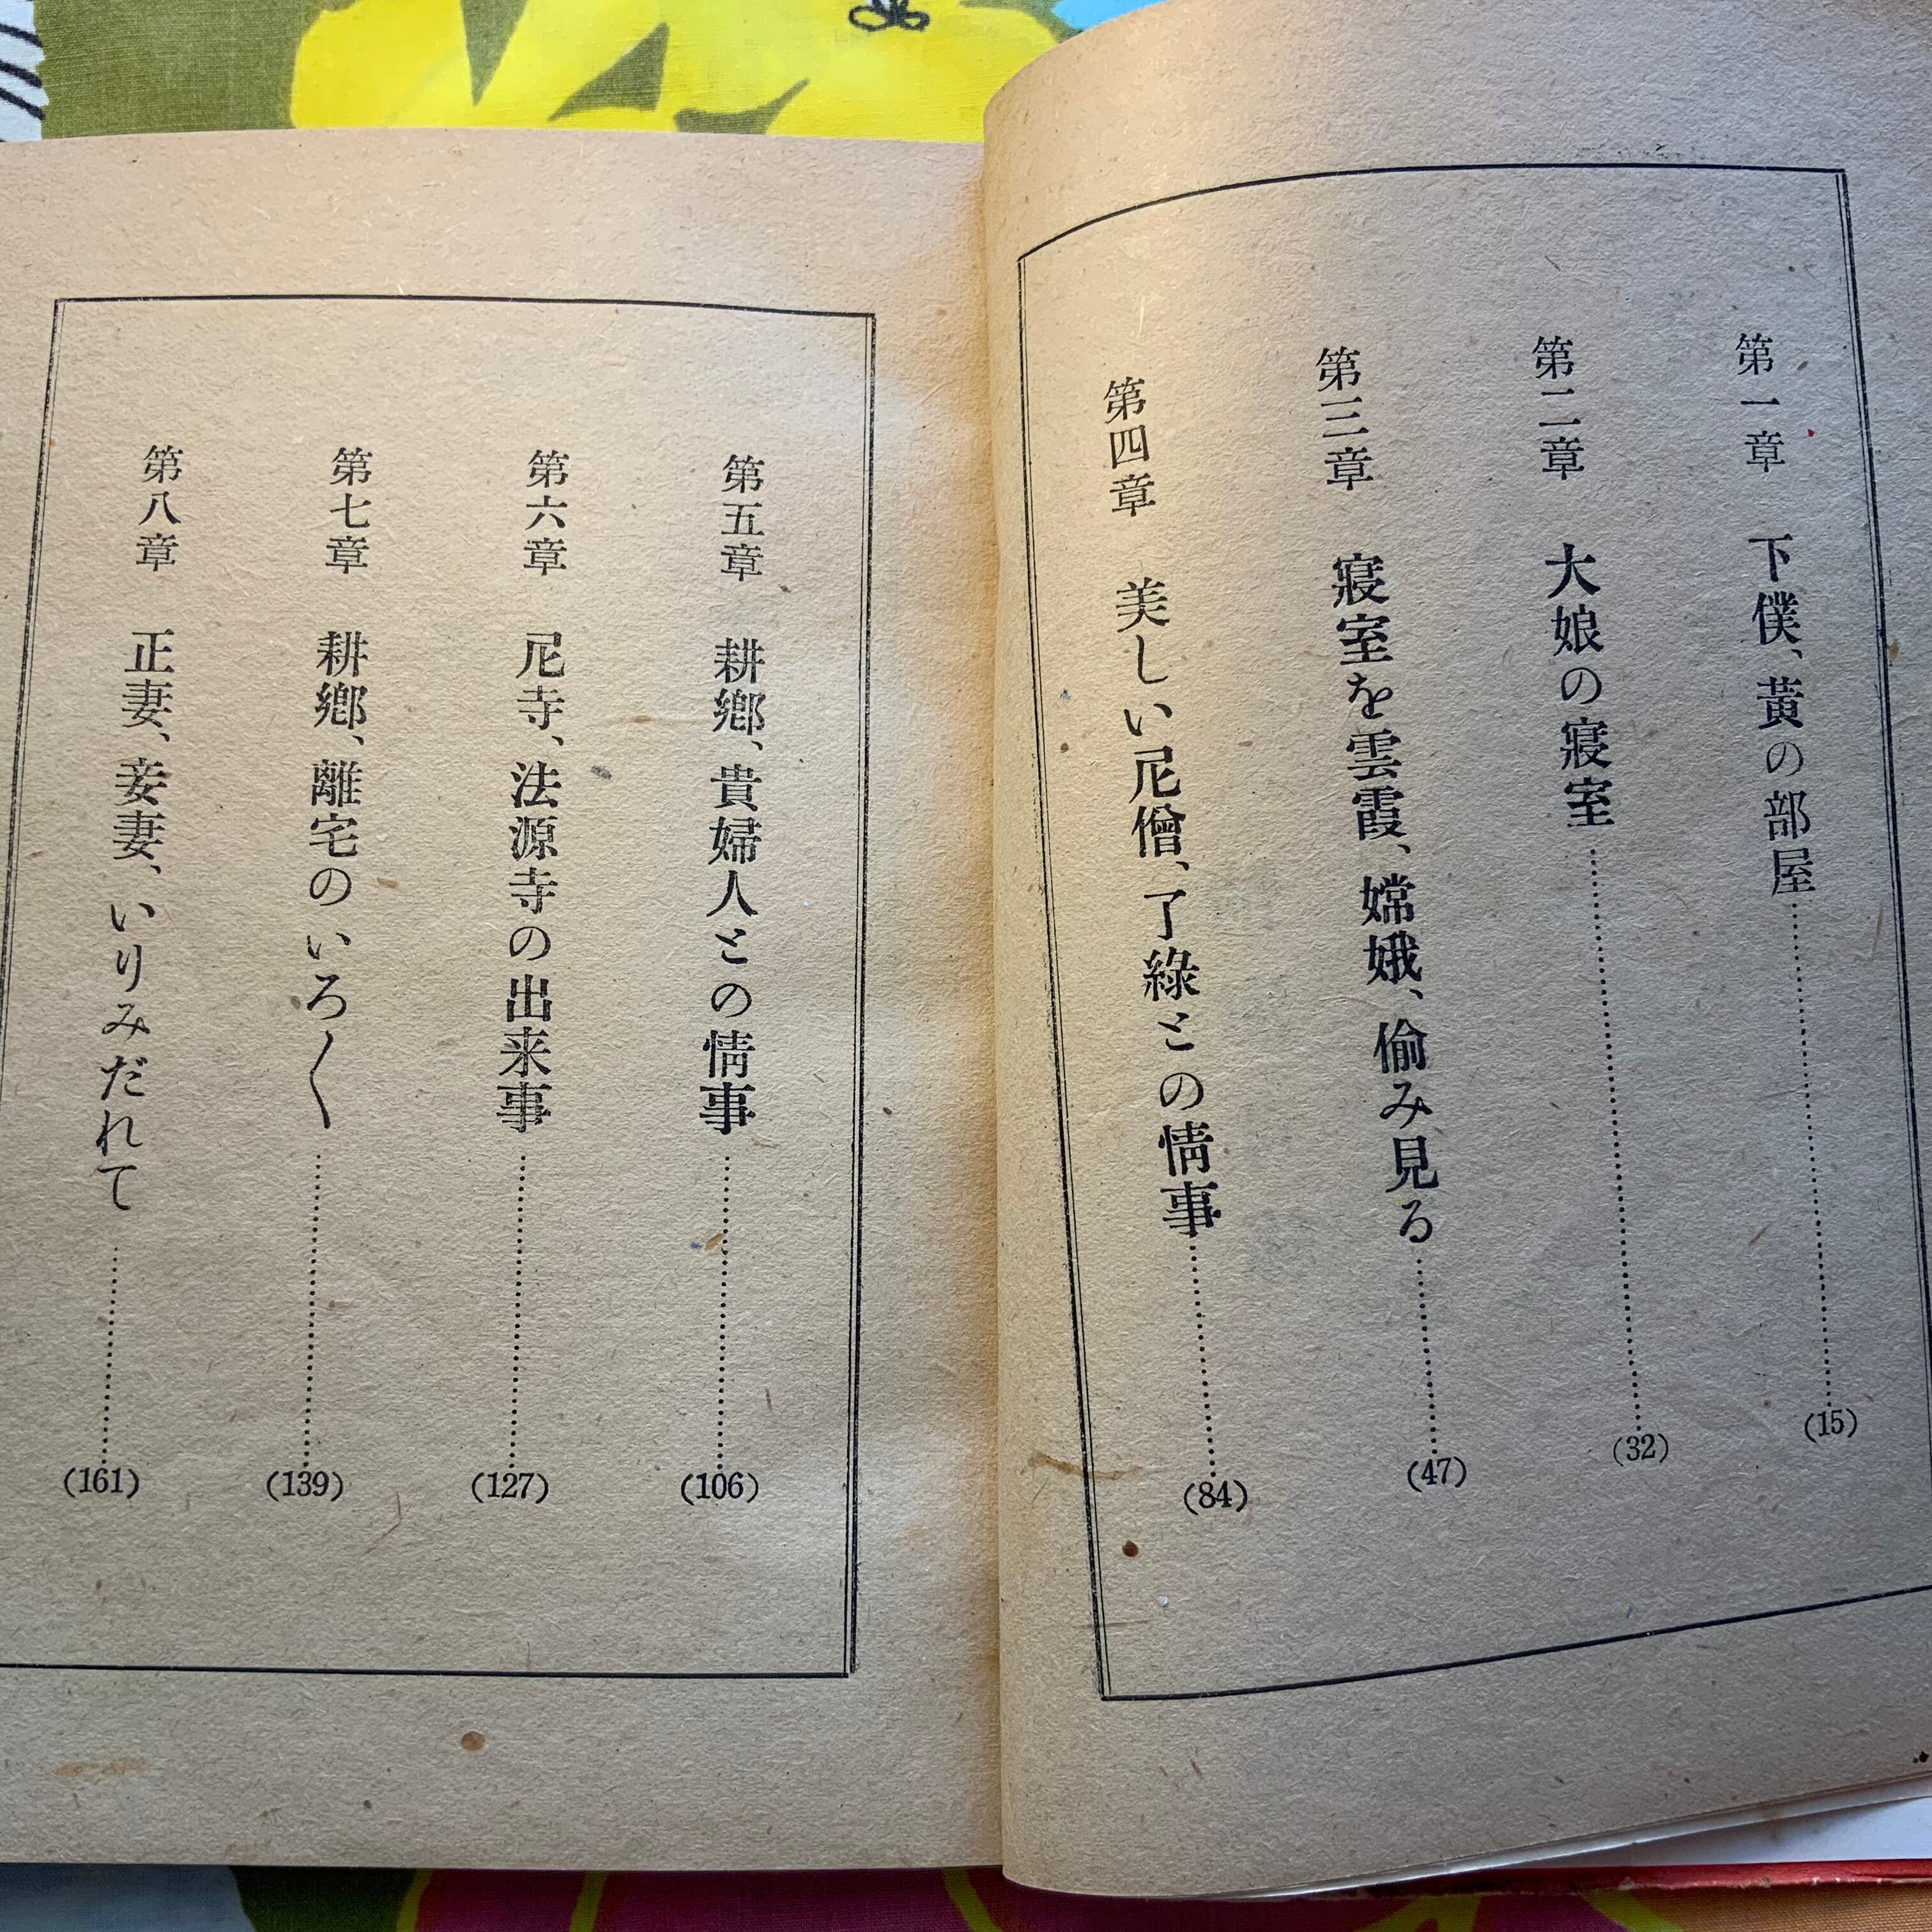 第一章　下僕、黃の部屋……(15)
第二章　大娘の寢室……(32)
第三章　寢室を雲霞、嫦娥、偷み見る……(47)
第四章　美しい尼僧、了綠との情事……(84)
第五章　耕鄕、貴婦人との情事……(106)
第六章　尼寺、法源寺の出来事……(127)
第七章　耕鄕、離宅のいろ〱……(139)
第八章　正妻、妾妻、いりみだれて……(161)